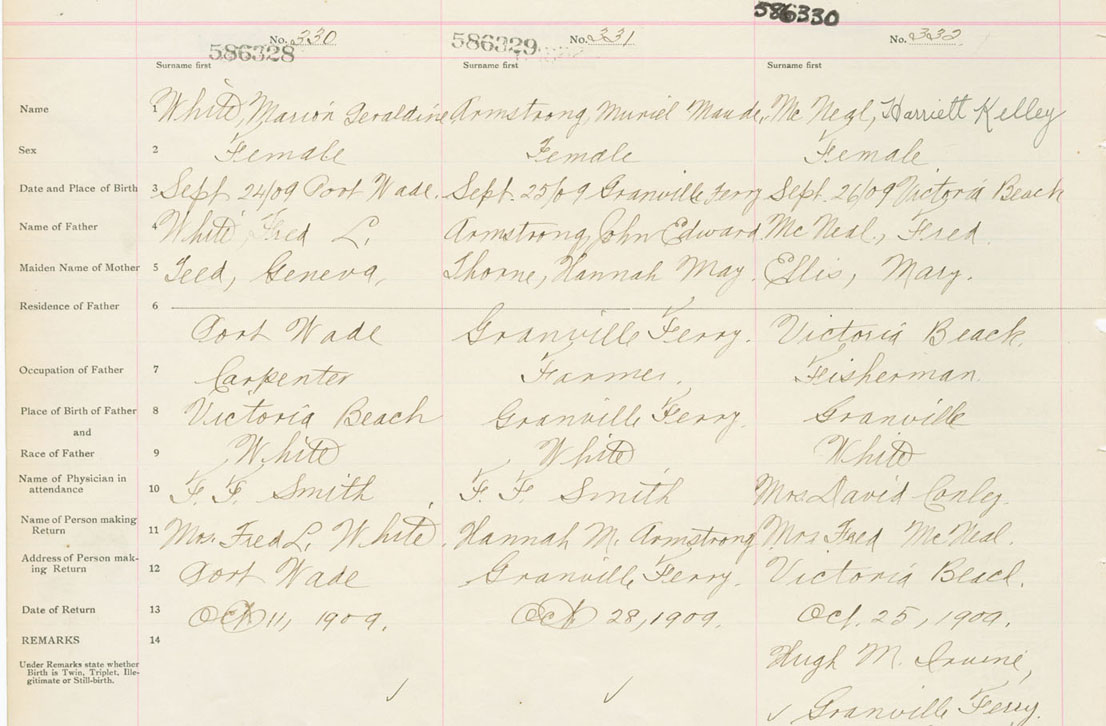 586330
No. 330 No. 331 No. 332
586328 586329
Surname first Surname first Surname first
Name 1 White, Marion Geraldine Armstrong, Muriel Maude, Mc Neal, Harriett Kelley
Sex 2 Female Female Female
Date and Place of Birth 3 Sept 24/09 Port Wade. Sept. 25/09 Granville Ferry Sept. 26/09 Victoria Beach
Name of Father 4 White, Fred L. Armstrong, John Edward Mc Neal, Fred.
Maiden Name of Mother 5 Teed, Geneva, Thorne, Hannah May. Ellis, Mary.
Residence of Father 6
Port Wade Granville Ferry. Victoria Beach.
Occupation of Father 7 Carpenter Farmer. Fisherman.
Place of Birth of Father 8 Victoria Beach Granville Ferry. Granville
and
Race of Father 9 White White White
Name of Physician in
attendance 10 F. F. Smith F. F. Smith Mrs David Conley.
Name of Person making
Return 11 Mrs. Fred L. White. Hannah M. Armstrong Mrs Fred McNeal.
Address of Person mak-
ing Return 12 Port Wade Granville Ferry. Victoria Beach.
Date of Return 13 Oct 11, 1909. Oct 28, 1909. Oct. 25, 1909.
REMARKS 14
Hugh M. Irvine,
Under Remarks state whether
Birth is Twin, Triplet, Ille-
gitimate or Still-birth.
Granville Ferry.